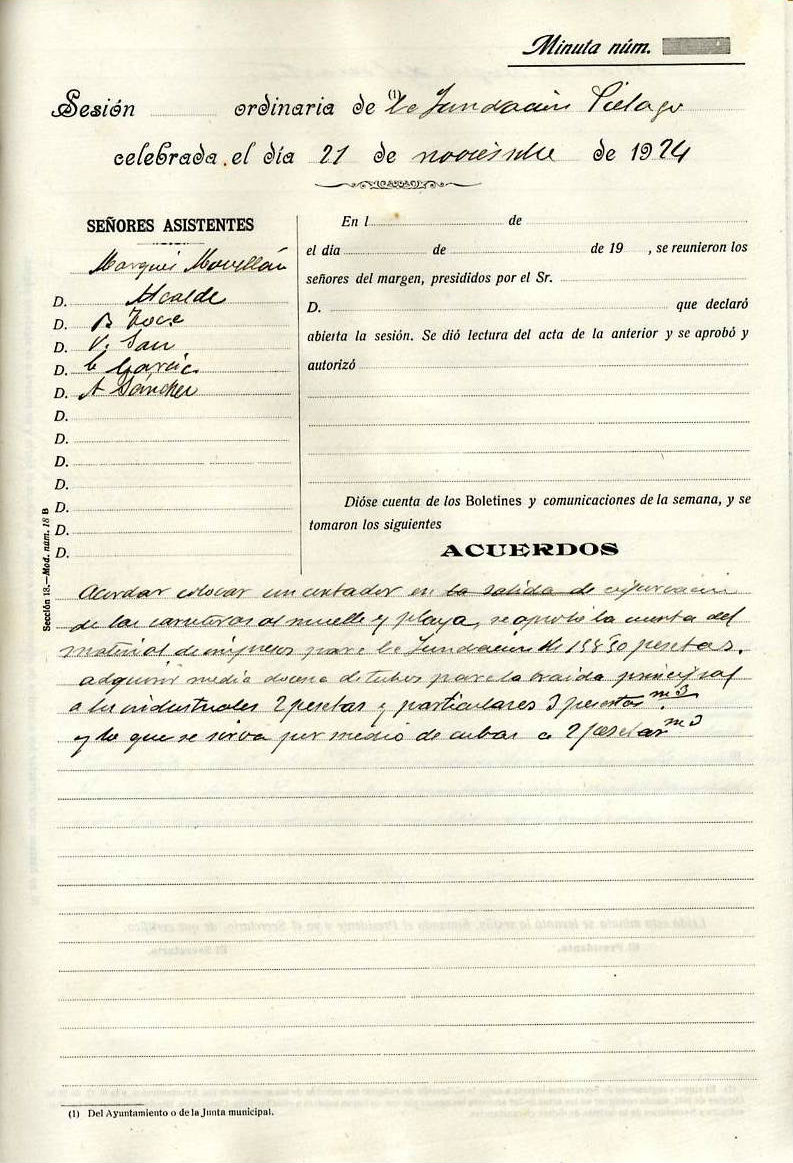 Minuta núm.
Sesión ordinaria de (1) la Fundación Piélago
celebrada el día 21 de noviembre de 1924
SEÑORES ASISTENTES
Marqués Movellán
D. Alcalde
D. B
D. V. San
D. C García
D. A Sánchez
D.
D.
D.
D.
D.
D.
D.
En l de
el dia de de 19 , se reunieron los
señores del margen, presididos por el Sr.
D. que declaró
abierta la sesión. Se dió lectura del acta de la anterior y se aprobó y
autorizó
Dióse cuenta de los Boletines y comunicaciones de la semana, y se
tomaron los siguientes
ACUERDOS
Acordar colocar un contador en la salida de
de las carreteras al muelle y playa, se aprobó la cuenta del
material de impresos para la Fundación de pesetas.
adquirir media docena de tubos para la traida principal
a los industriales 2 pesetas y particulares 3 pesetas m3
y lo que se sirva por medio de cubas a 2 pesetas m3
Sección 18.—Mod. núm. 18 B
(1) Del Ayuntamiento o de la Junta municipal.